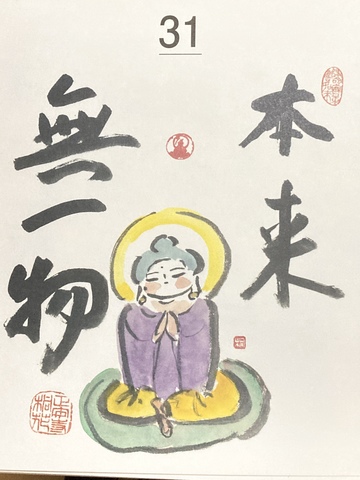 31
本来
無一物